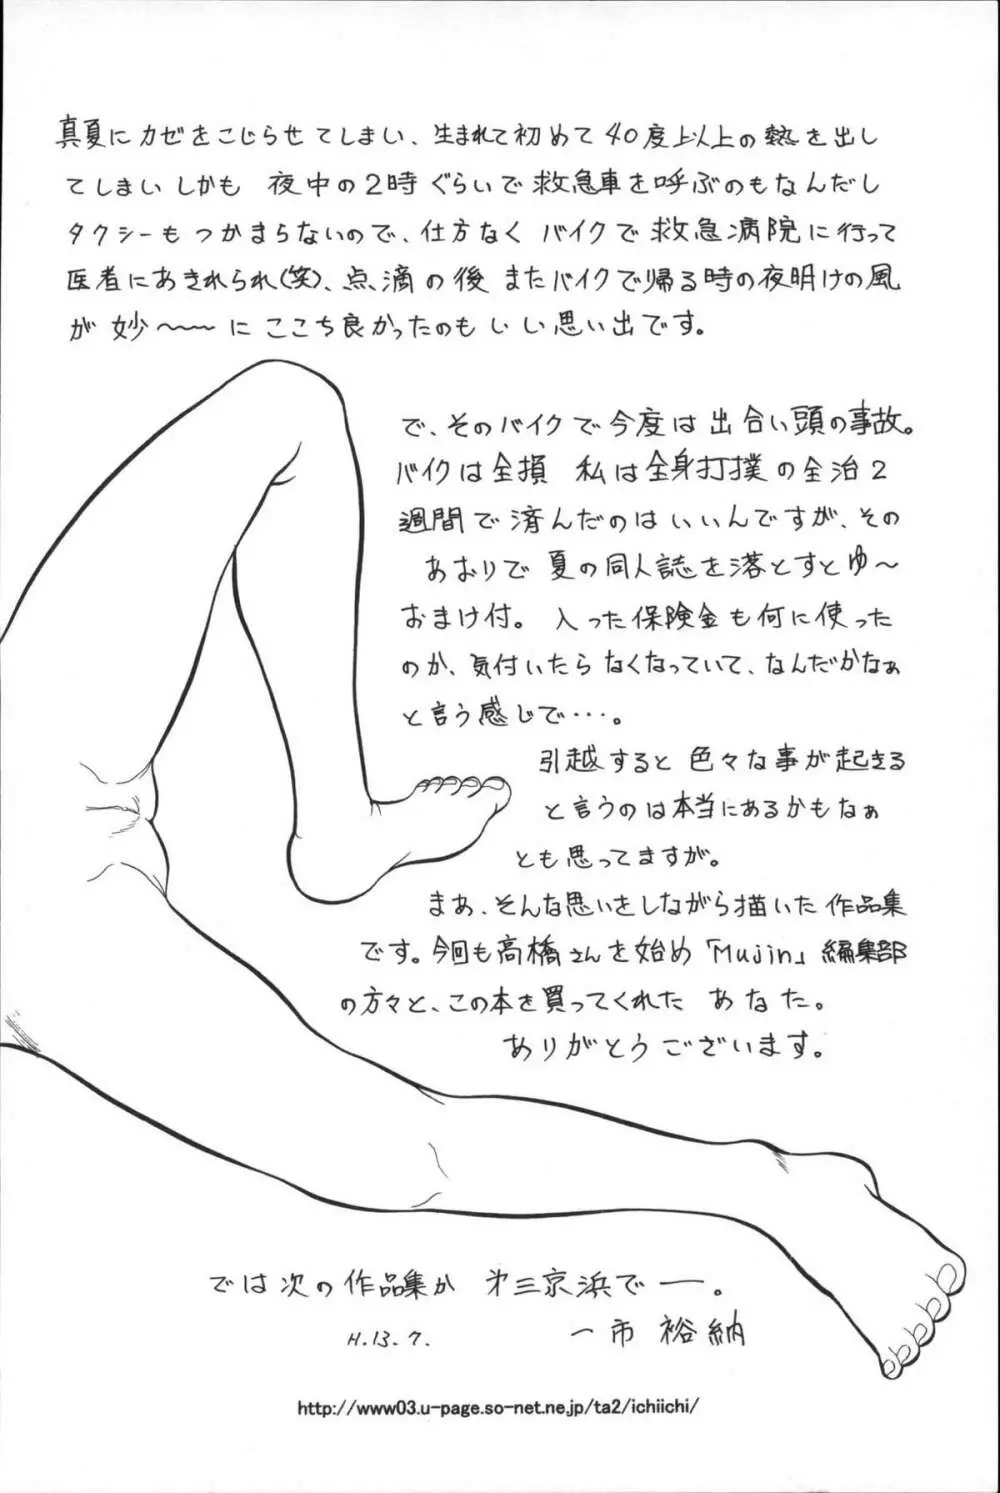 真夏にカゼをこじらせてしまい、生まれて初めて40度上以上の熱を出し
てしまいしかも 夜中の2時ぐらいで救急車を呼ぶのもなんだし
タクシーもつかまらないので、仕方なくバイクで救急病院に行って
医者にあきれられ(笑)、点滴の後またバイクで帰る時の夜明けの風
が妙〜〜〜にここち良かったのもいい思い出です。
で、そのバイクで今度は出合い頭の事故。
バイクは全損 私は全身打撲の全治2
週間で済んだのはいいんですが、その
あおりで夏の同人誌を落とすとゆ〜
おまけ付。入った保険金も何に使った
のか、気付いたらなくなっていて、なんだかなぁ
と言う感じで・・・。
引越すると色々な事が起きる
と言うのは本当にあるかもなぁ
とも思ってますが。
まあ、そんな思いをしながら描いた作品集
です。今回も高橋さんを始め「Mujin」編集部
の方々と、この本を買ってくれた あなた。
ありがとうございます。
では次の作品集か 㐧三京浜でー。
H.13.7. 一市 裕納
http://www03.u-page.so-net.ne.jp/ta2/ichiichi/